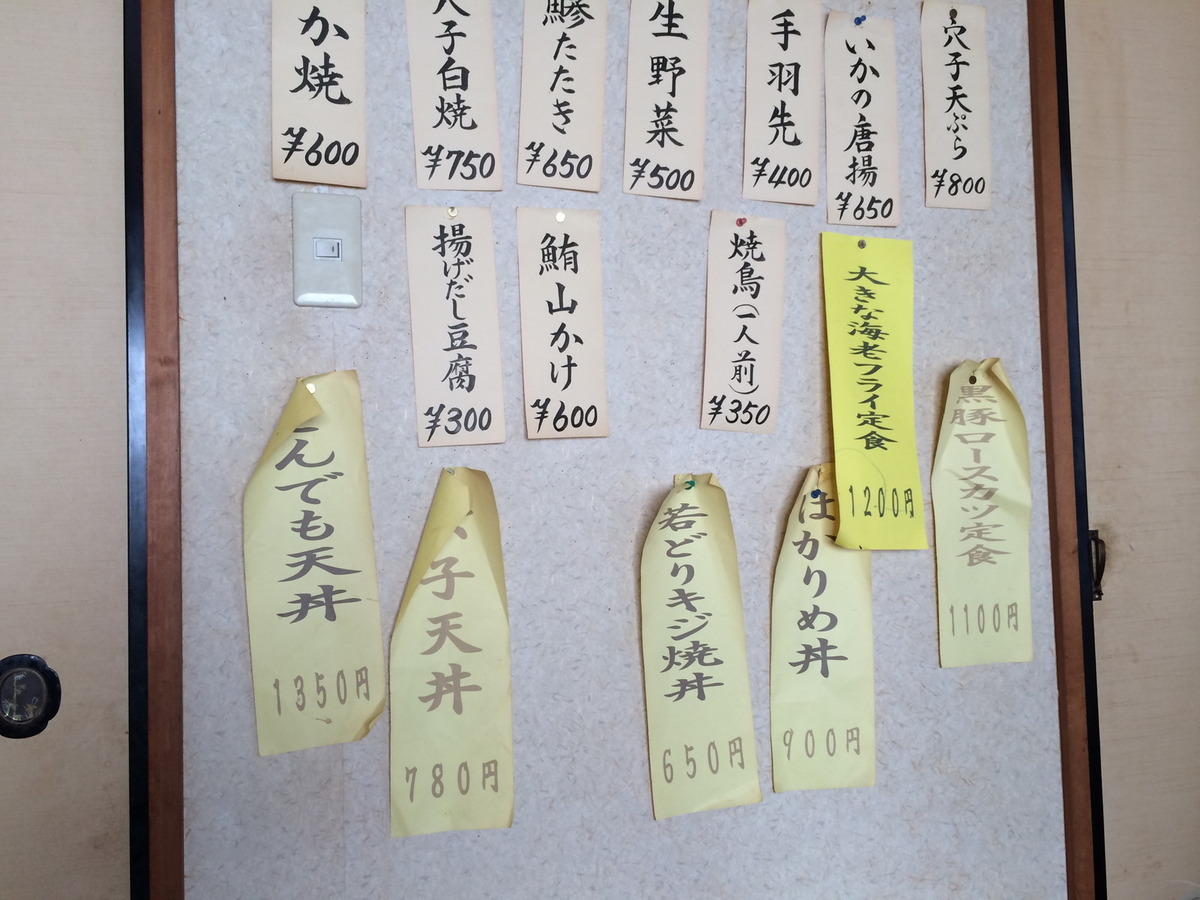 穴子天ぷら
¥800
いかの唐揚
¥650
手羽先
¥400
生野菜
¥500
鯵たたき
¥650
子白焼
¥750
か焼
¥600
大きな海老フライ定食
1200円
焼鳥(一人前)
¥350
鮪山かけ
¥600
揚げだし豆腐
¥300
黒豚ロースカツ定食
1100円
はかりめ丼
900円
若どりキジ焼丼
650円
子天丼
780円
んでも天丼
1350円